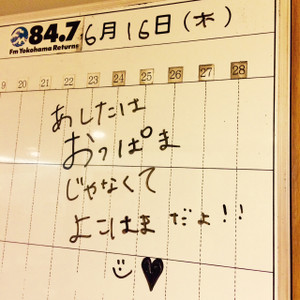 84.7
Fm Yokohama Returns
6月16日(木)
9 20 21 22 23 24 25 26 27 28
あしたは
おっぱま
じゃなくて
よこはまだよ!!